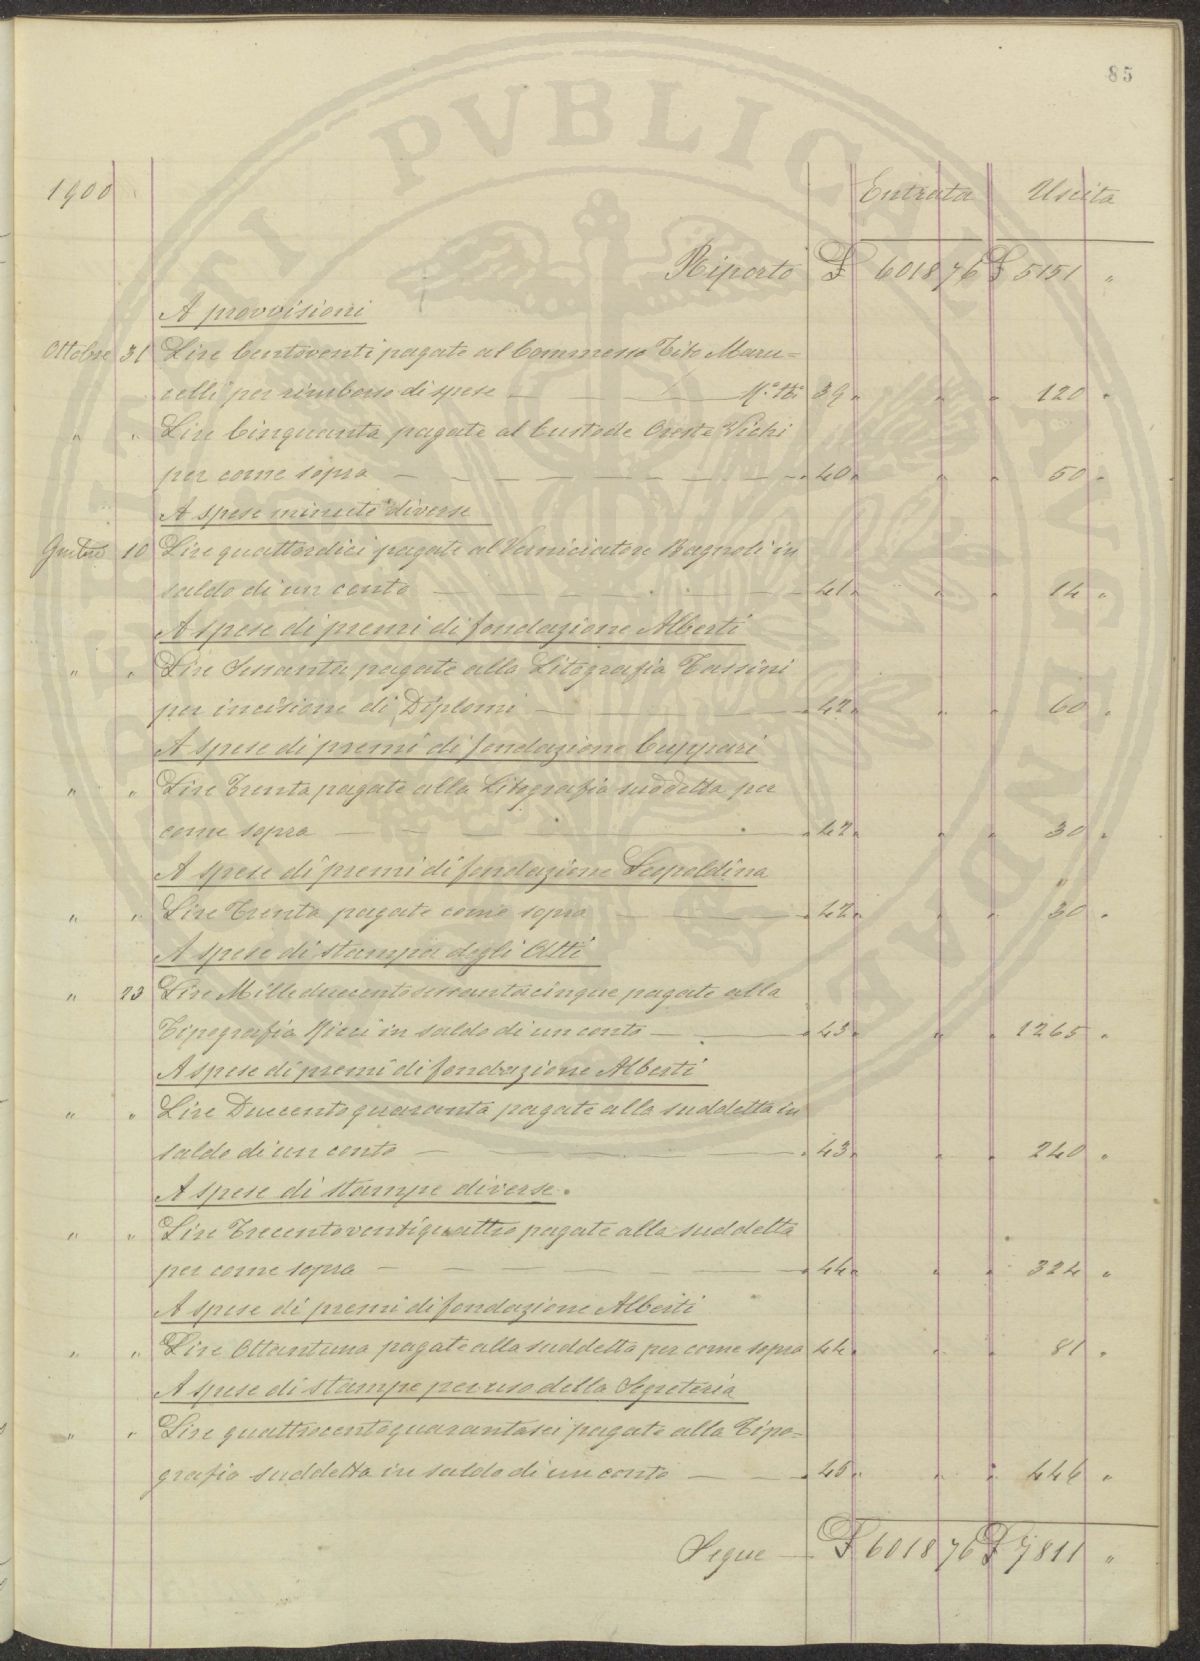 85
1900 Entrata Uscita
Riporto £ 6018 76 £ 5151 "
A provvisioni
Ottobre 31 Lire Centoventi pagate al Commesso Tito Maru=
celli per rimborso di spese 39 " " " 120 "
" " Lire Cinquanta pagate al Custode Oreste Vichi
per come sopra " 40 " " " 50 "
A spese minute diverse
10 Lire quattordici pagate al Verniciatore Bagnoli in
saldo di un conto " 41 " " " 14 "
A spese di premi di fondazione Alberti
" " Lire Sessanta pagate alla Litografia Tassini
per incisione di Diplomi " 42 " " " 60 "
A spese di premi di fondazione Cuppari
" " Lire Trenta pagate alla Litografia suddetta per
come sopra " 42 " " " 30 "
A spese di premi di fondazione Leopoldina
" " Lire Trenta pagate come sopra " 42 " " " 30 "
A spese di stampa degli Atti
" 23 Lire Milleduecentosessantacinque pagate alla
Tipografia Ricci in saldo di un conto " 43 " " " 1265 "
A spese di premi di fondazione Alberti
" " Lire Duecentoquaranta pagate alla suddetta in
saldo di un conto " 43 " " " 240 "
A spese di stampe diverse.
" " Lire Trecentoventiquattro pagate alla suddetta
per come sopra " 44 " " " 324 "
A spese di premi di fondazione Alberti
" " Lire Ottantuna pagate alla suddetta per come sopra 44 " " " 81 "
A spese di stampe per uso della Segreteria
" " Lire quattrocentoquarantasei pagate alla Tipo=
grafia suddetta in saldo di un conto " 45 " " " 446 "
Segue £ 6018 76 £ 7811 "